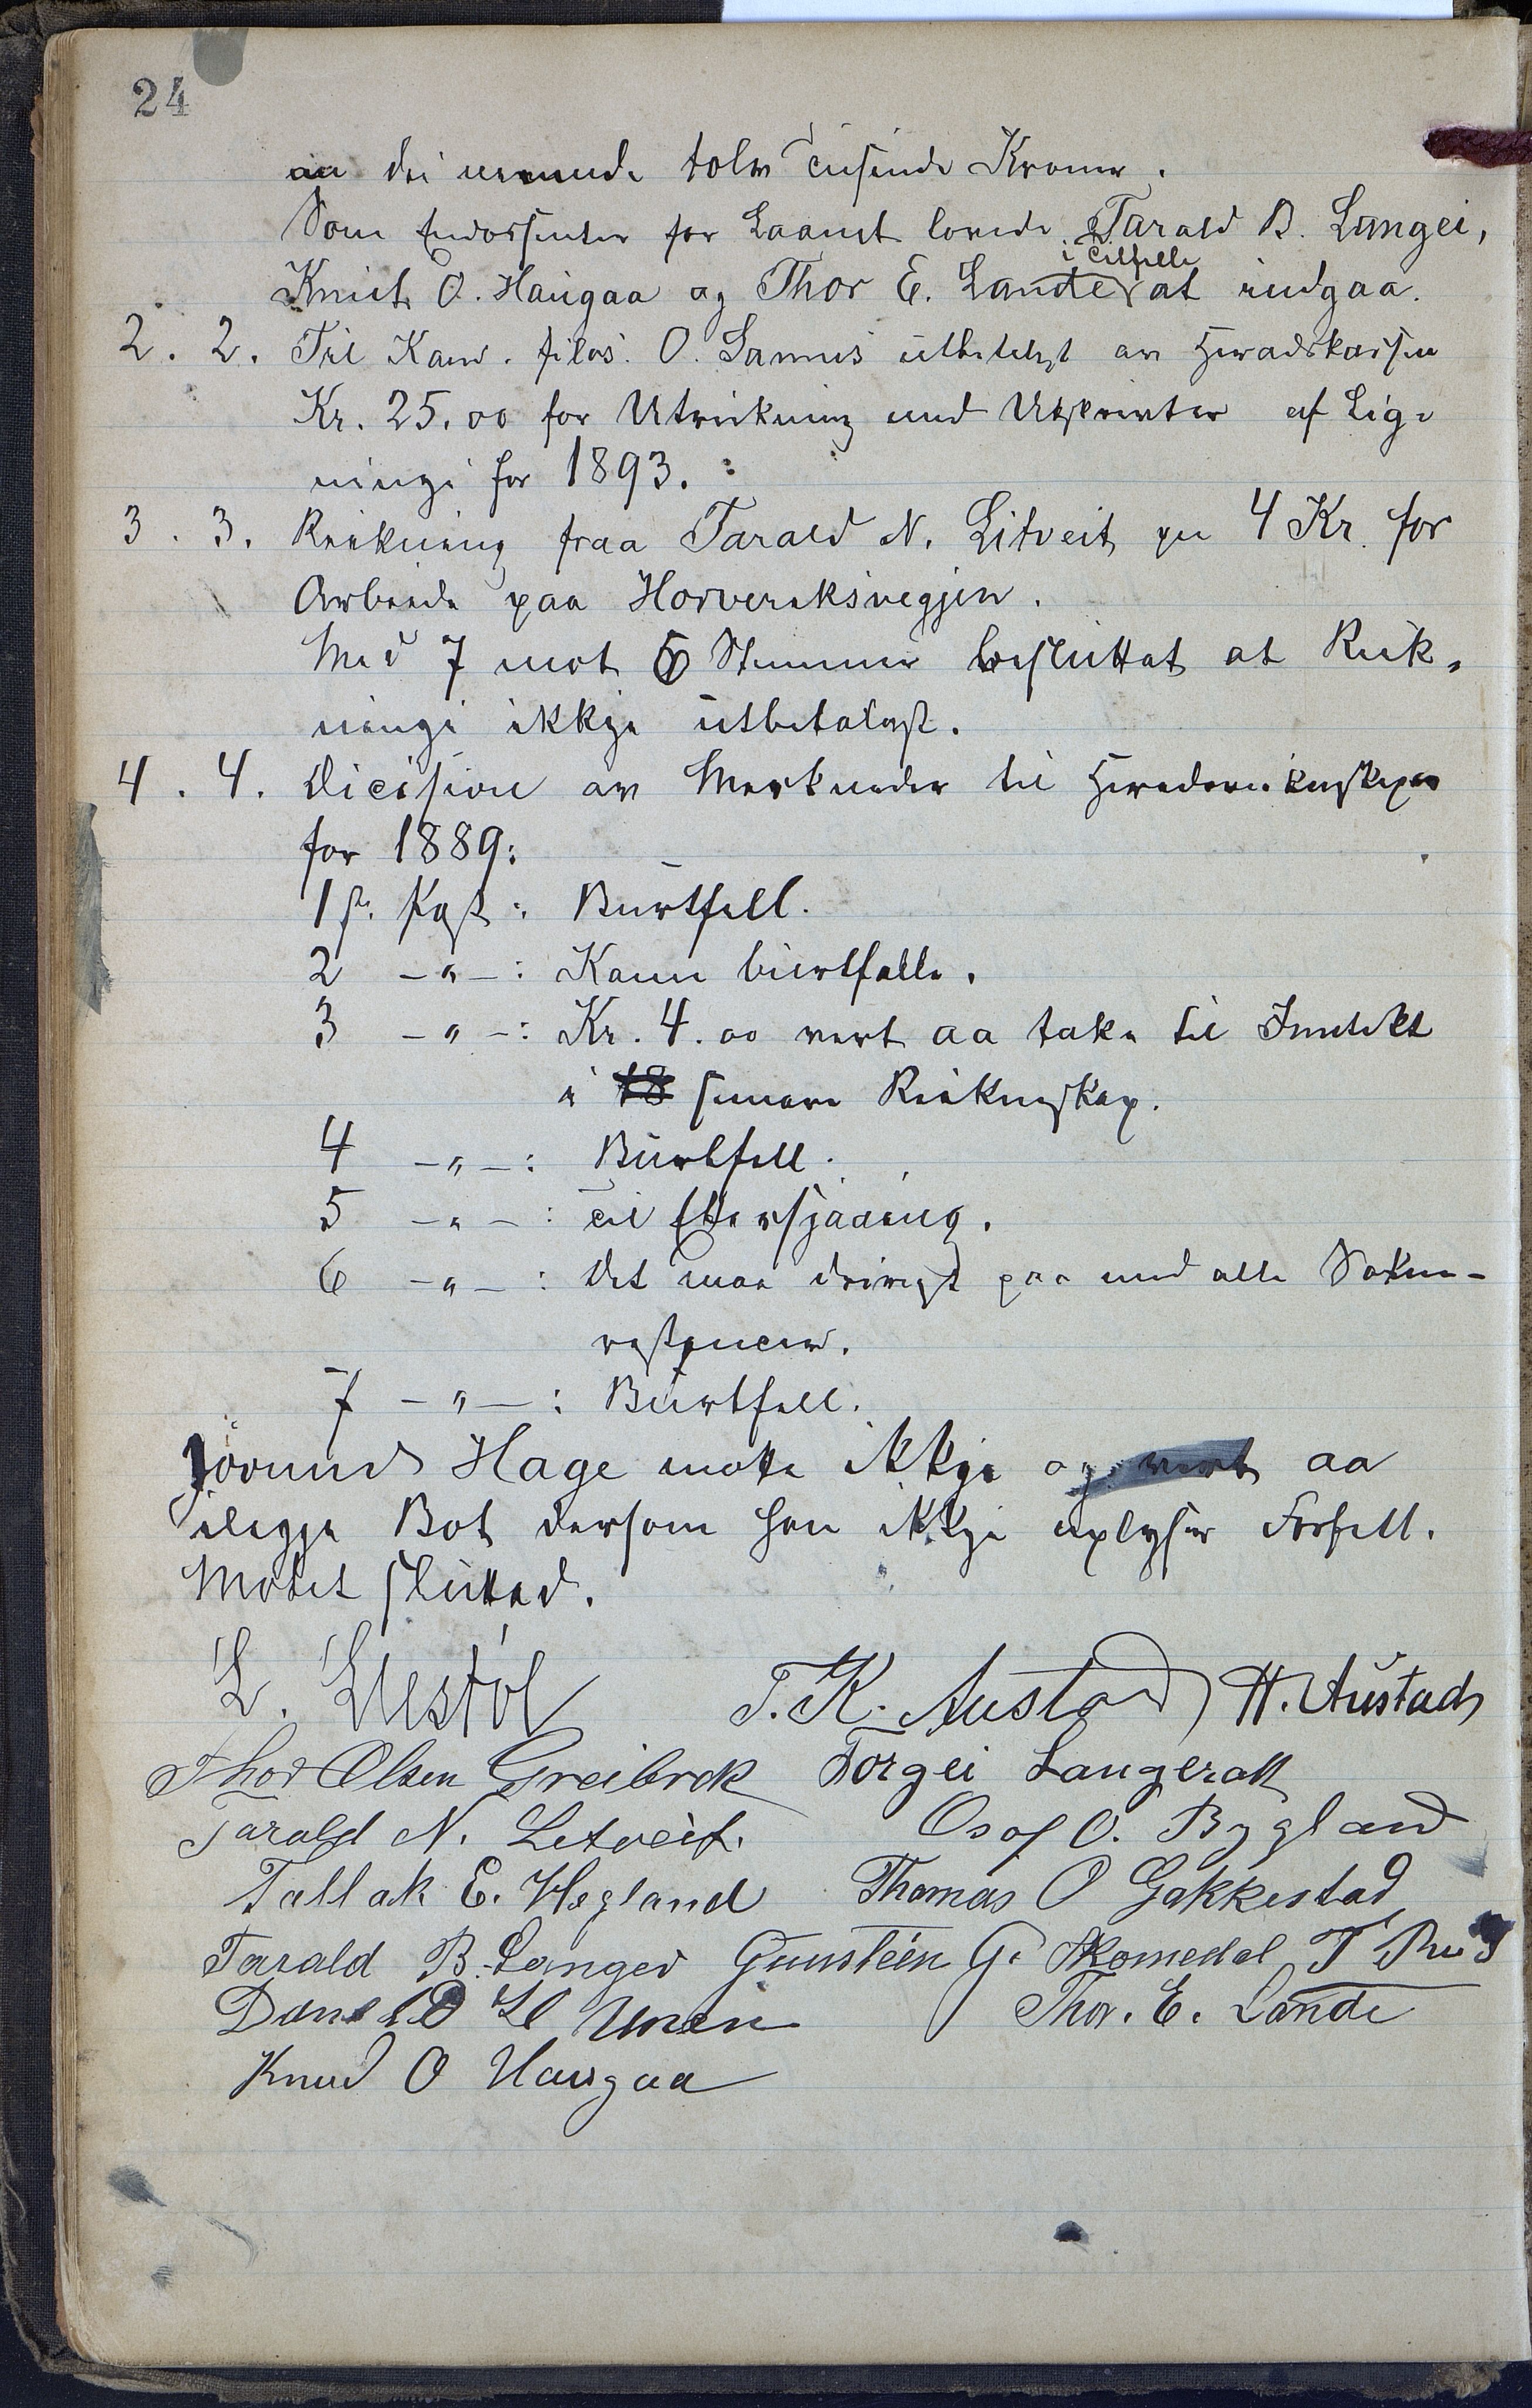 24
aa dei nemnde tolv Tusinde Kronur.
Som Endossentar for Laanet lovede Tarald B. Langei,
i Tilfelle
Knut O. Haugaa og Thor E. Lande at indgaa.
2. 2. Til Kand. filos. O. Sannes utbetalast av Heradskassen
Kr. 25.00 for Utrekning med Utskrivter af Lig-
ningi for 1893.
3. 3. Rekning fraa Tarald N. Litveit paa 4 Kr. for
Arbeide paa Horveraksvegjen.
Med 7 mot 6 Stemmur besluttat at Rek-
ningi ikkje utbetalast.
4. 4. Dicision av Merknader til Heradsrekneskapen
for 1889:
1ste Post: Burtfell.
2 -"-: Kann burtfalle.
3 -"-: Kr. 4.00 vert aa taka til Inntekt
i 18 senare Rekneskap.
4 -"-: Burtfell.
5 -"-: Til Ettersjaaing.
6 -"-: Det maa drivast paa med alle Skatte-
restancer.
7 -"-: Burtfell.
Jorund Hage møtte ikkje og vert aa
ileggja Bot dersom han ikkje uplyser Forfall.
Møtet sluttad.
L. Liestøl T. K. Austad H. Austad
Thor Olsen Greibrok Torgei Langerak
Tarald N. Letveit. Osof O. Bygland
Tallak E. Hegland Thomas O Gakkestad
Tarald B. Langei Gunsteen G. Skomedal
Daniel Thor. E. Lande
Knud O Haugaa